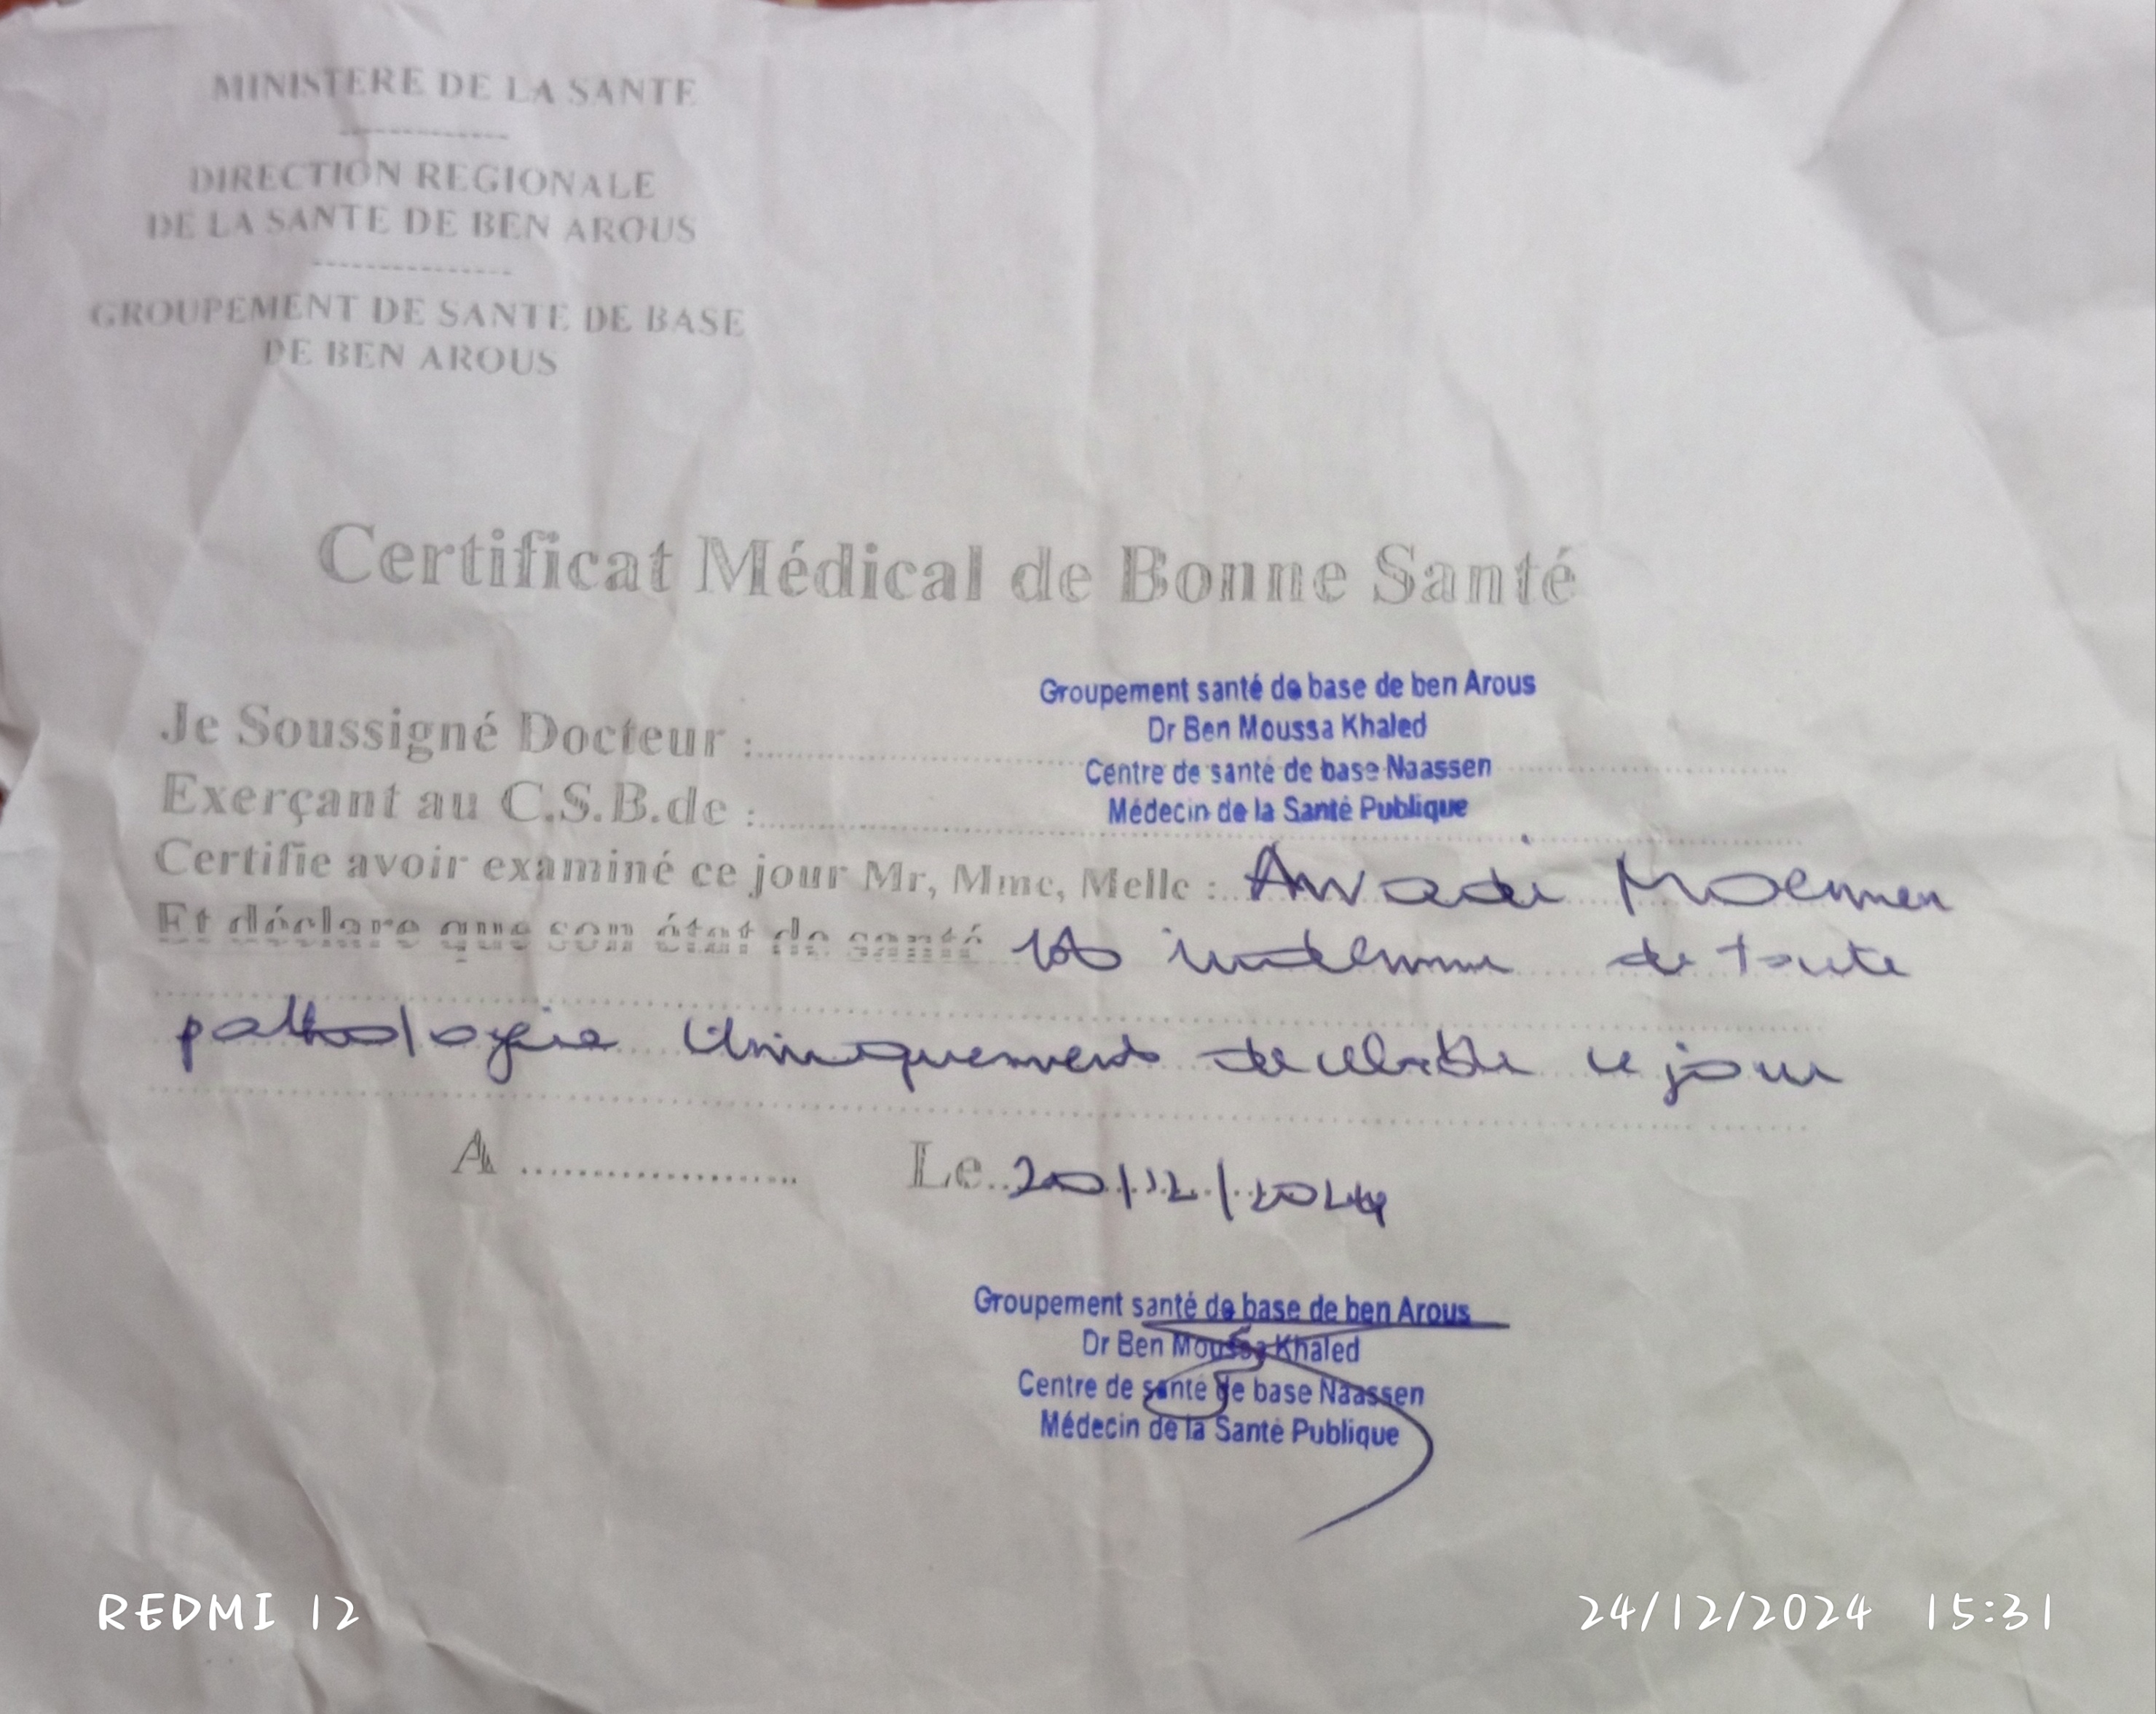 MINISTERE DE LA SANTE
DIRECTION REGIONALE
DE LA SANTE DE BEN AROUS
GROUPEMENT DE SANTE DE BASE
DE BEN AROUS
Certificat Médical de Bonne Santé
Groupement santé de base de ben Arous
Dr Ben Moussa Khaled
Je Soussigné Docteur :
Centre de santé de base Naassen
Exerçant au C.S.B.de :
Médecin de la Santé Publique
Certifie avoir examiné ce jour Mr, Mme, Melle : Awadi Moemen
Et déclare que son état de santé est indemne de toute
pathologie cliniquement decelable ce jour
A .................... Le 20/12/2024
Groupement santé de base de ben Arous
Dr Ben Moussa Khaled
Centre de santé de base Naassen
Médecin de la Santé Publique
REDMI 12
24/12/2024 15:31